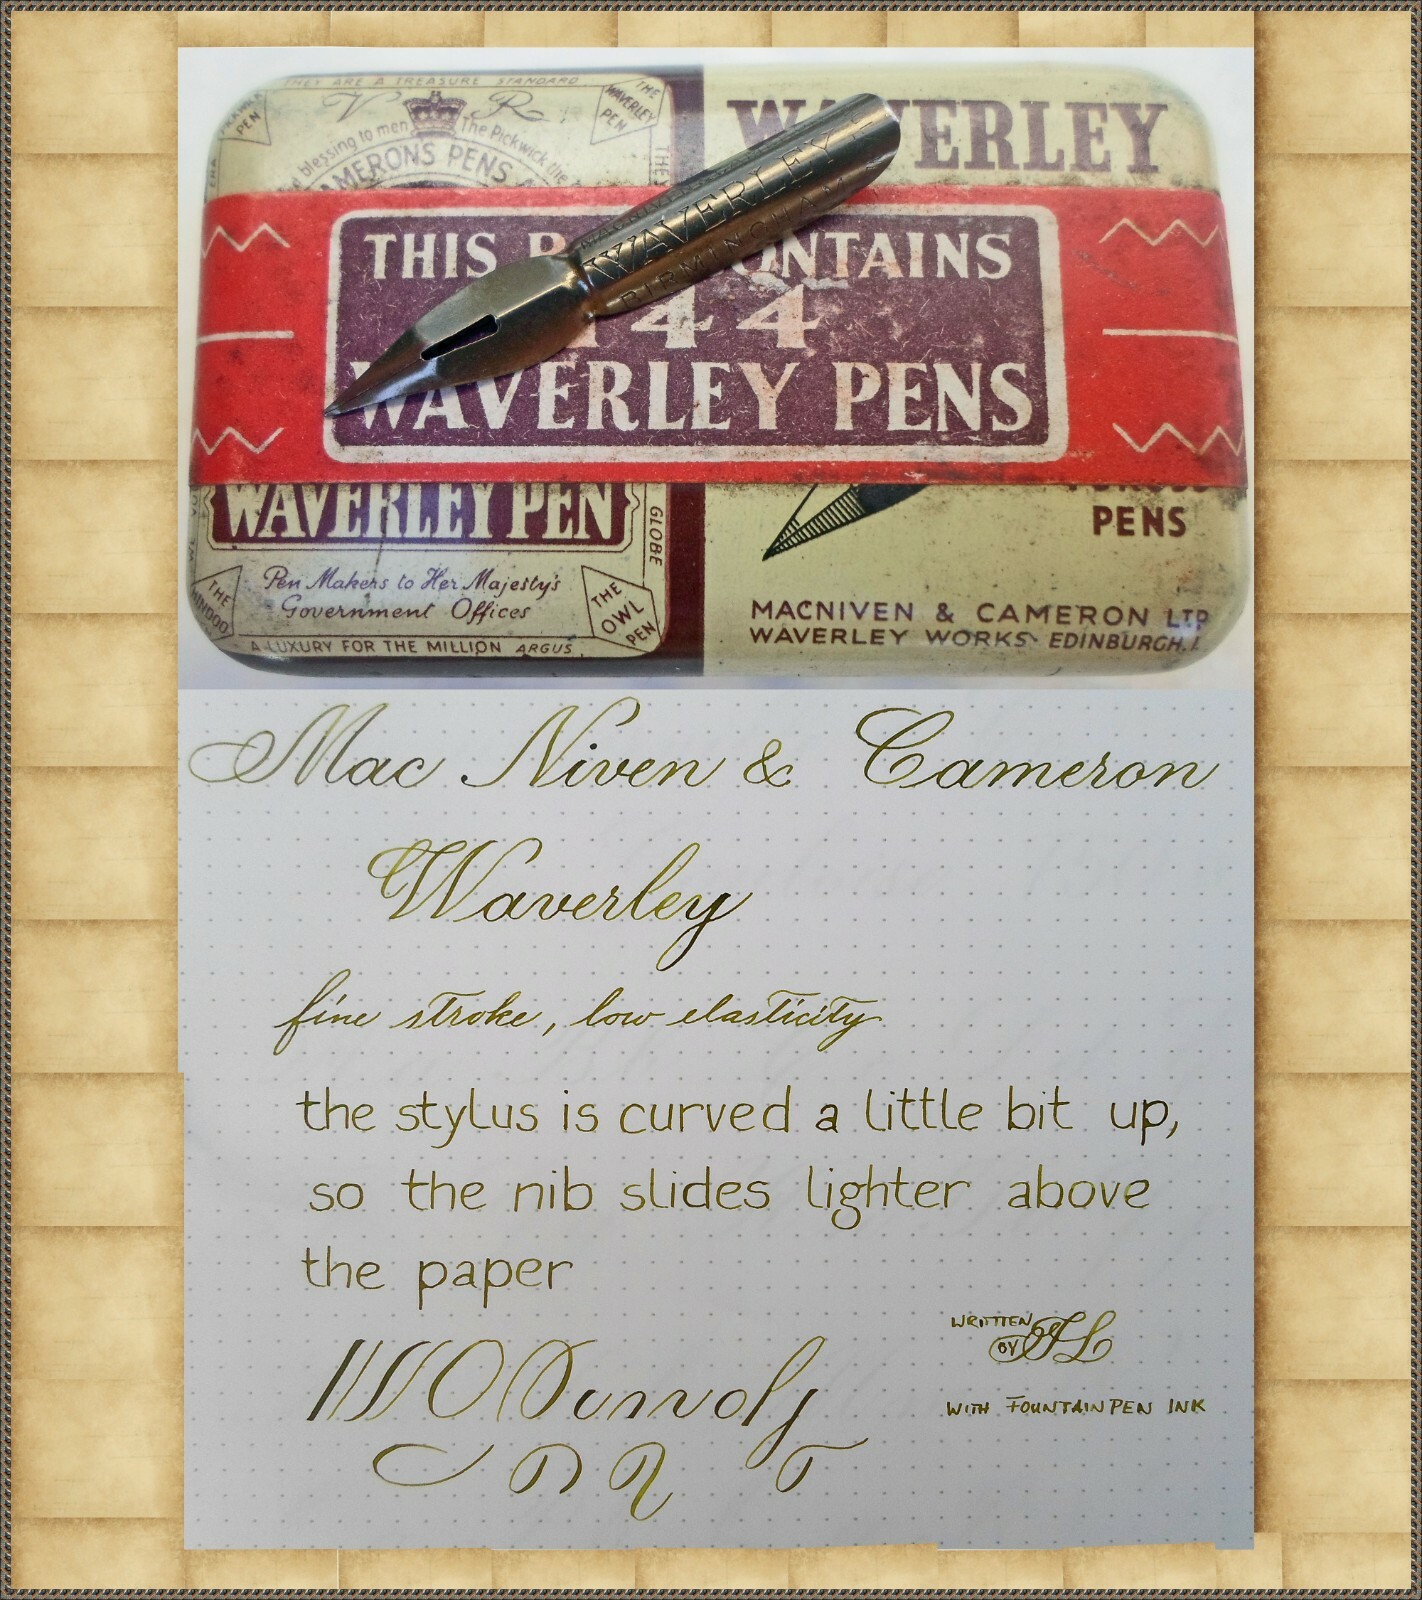 THEY ARE A TREASURE STANDARD
V R
THE WAVERLEY PEN
PEN
blessing to men
The Pickwick the
CAMERONS PENS
WAVERLEY
WAVERLEY
BIRMINGHAM
THIS CONTAINS
144
WAVERLEY PENS
WAVERLEY PEN
GLOBE
PENS
Pen Makers to Her Majesty's
Government Offices
THE HINDOO
THE OWL PEN
A LUXURY FOR THE MILLION ARGUS
MACNIVEN & CAMERON LTD
WAVERLEY WORKS EDINBURGH.1.
Mac Niven & Cameron
Waverley
fine stroke, low elasticity
the stylus is curved a little bit up,
so the nib slides lighter above
the paper
WRITTEN
BY JL
WITH FOUNTAINPEN INK